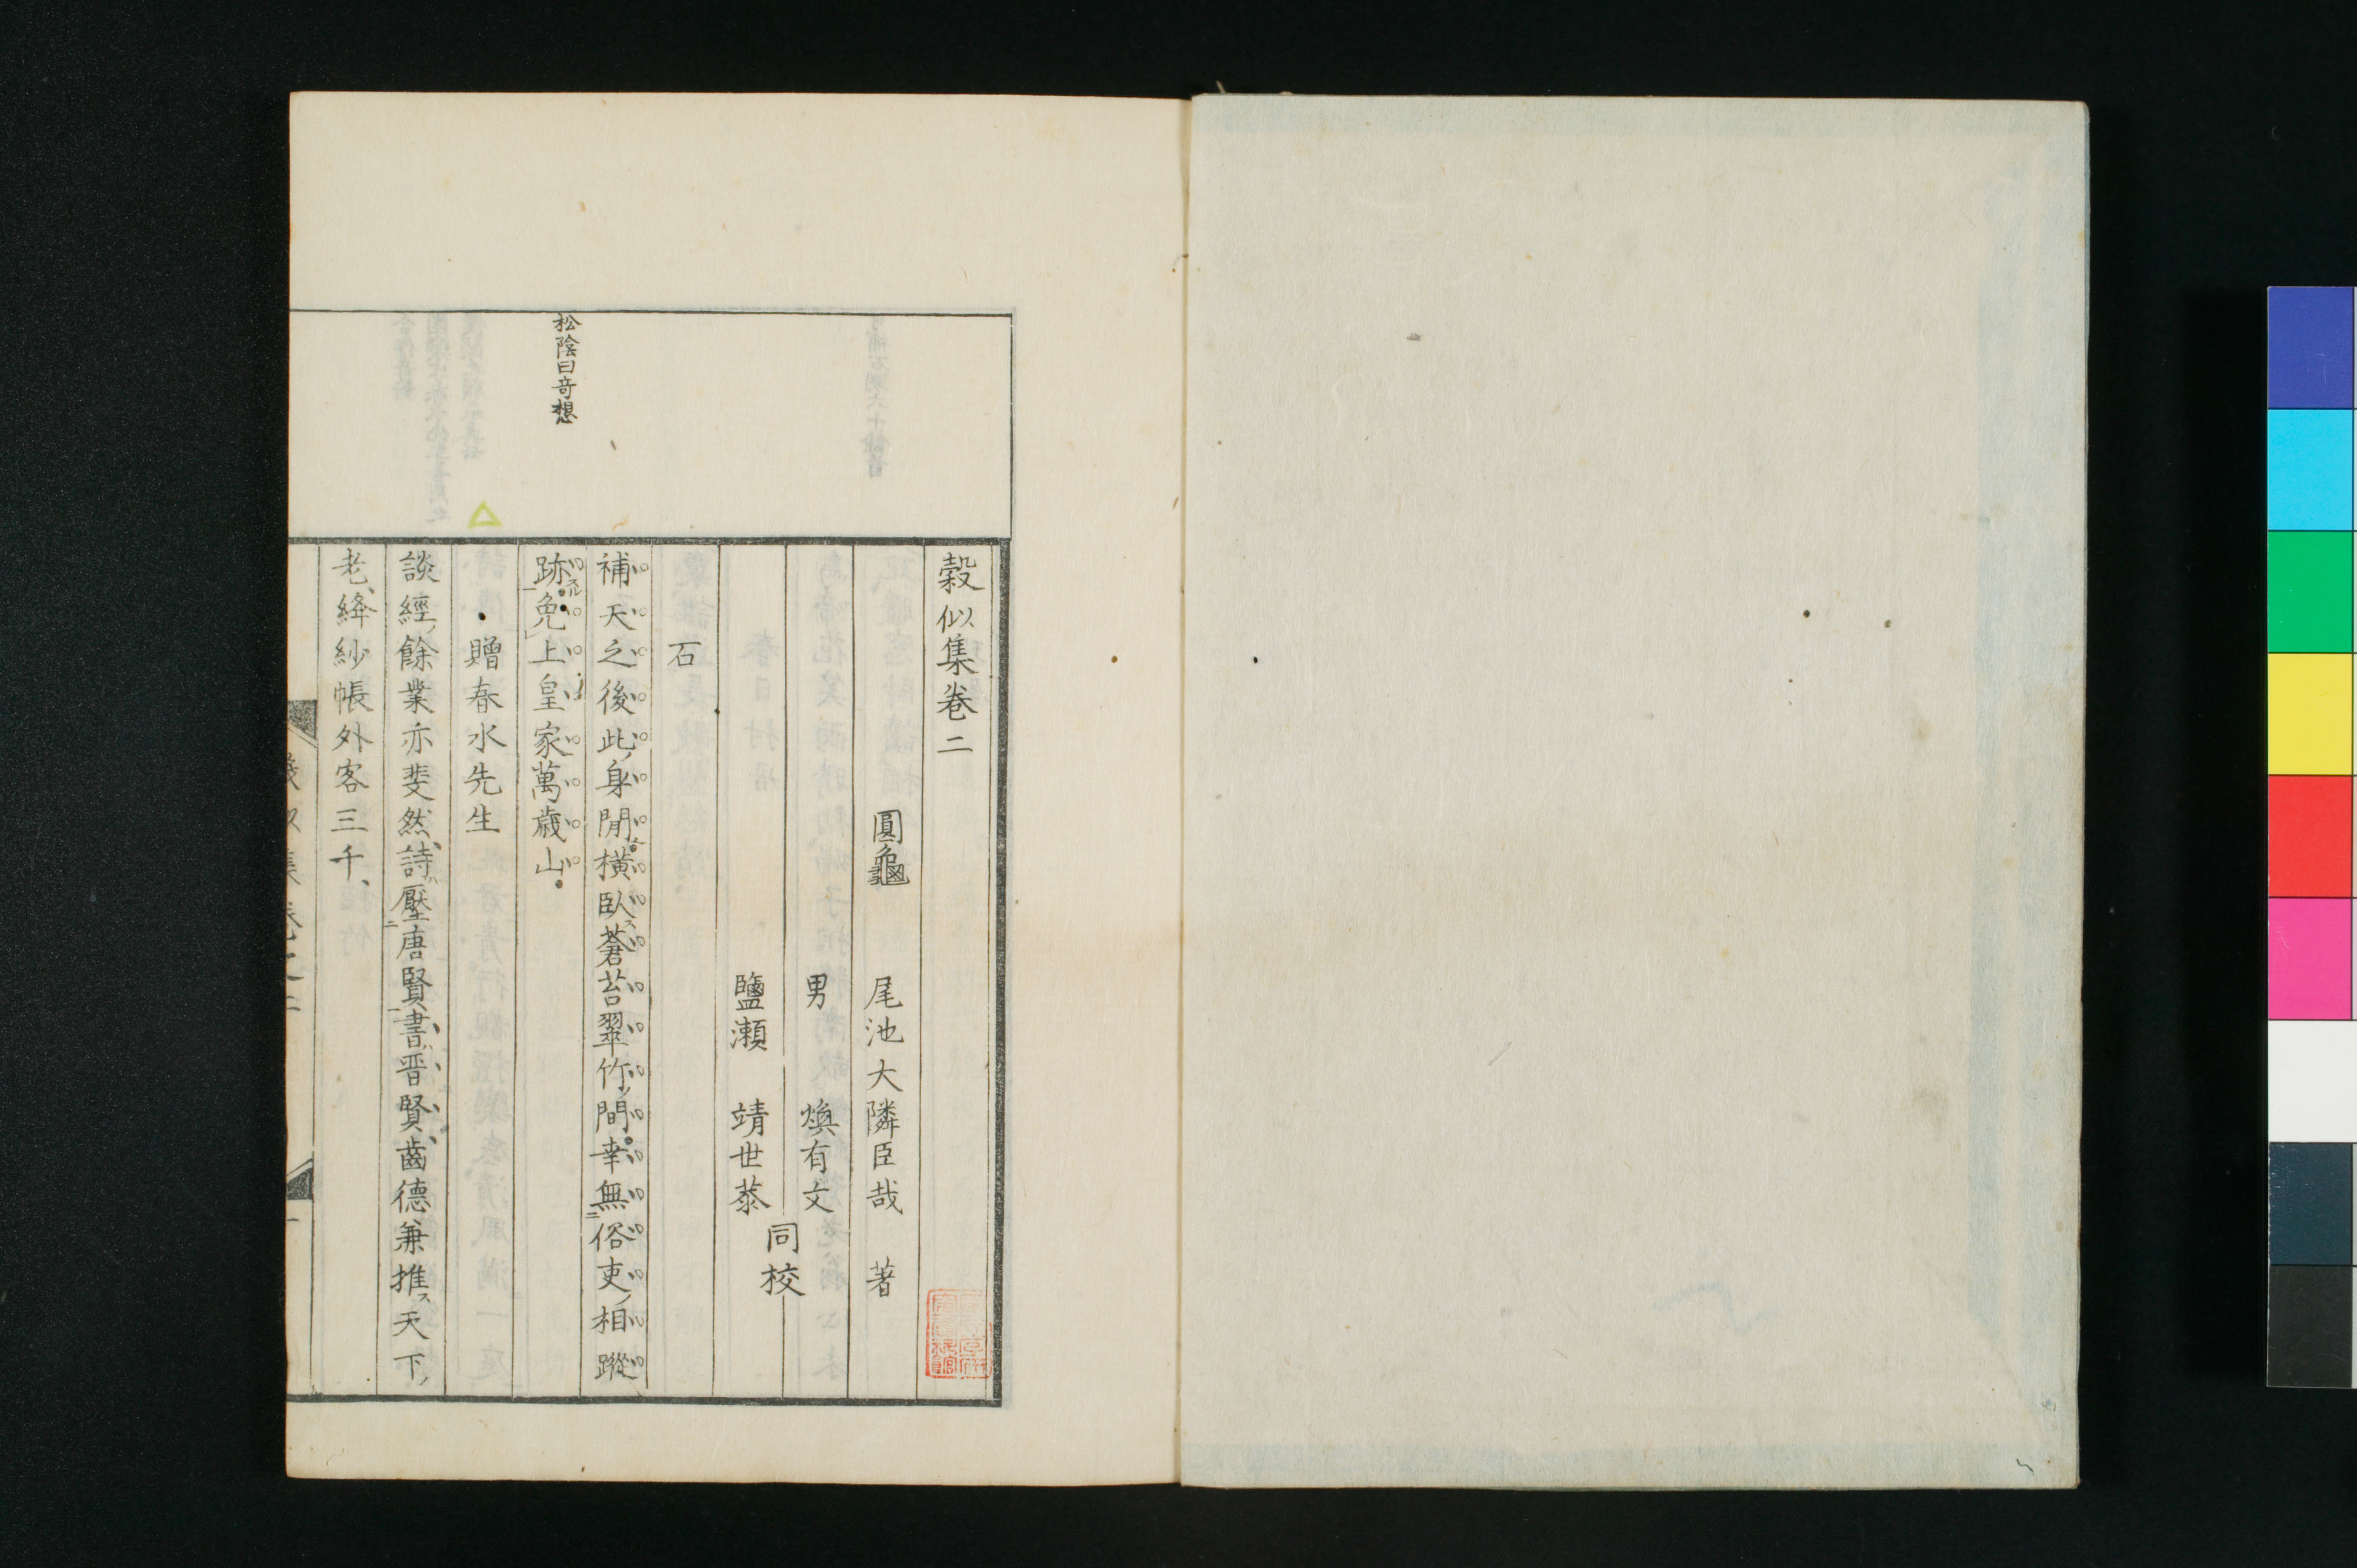 穀似集巻二
圓龜　尾池大隣臣哉　著
男　煥有文
鹽瀬　靖世恭
同校
石
補天之後此身閒橫臥蒼苔翠竹間幸無俗吏相蹤
跡免上皇家萬歳山
松陰曰奇想
贈春水先生
談經餘業亦斐然詩壓唐賢書晋賢齒德兼推天下
老絳紗帳外客三千